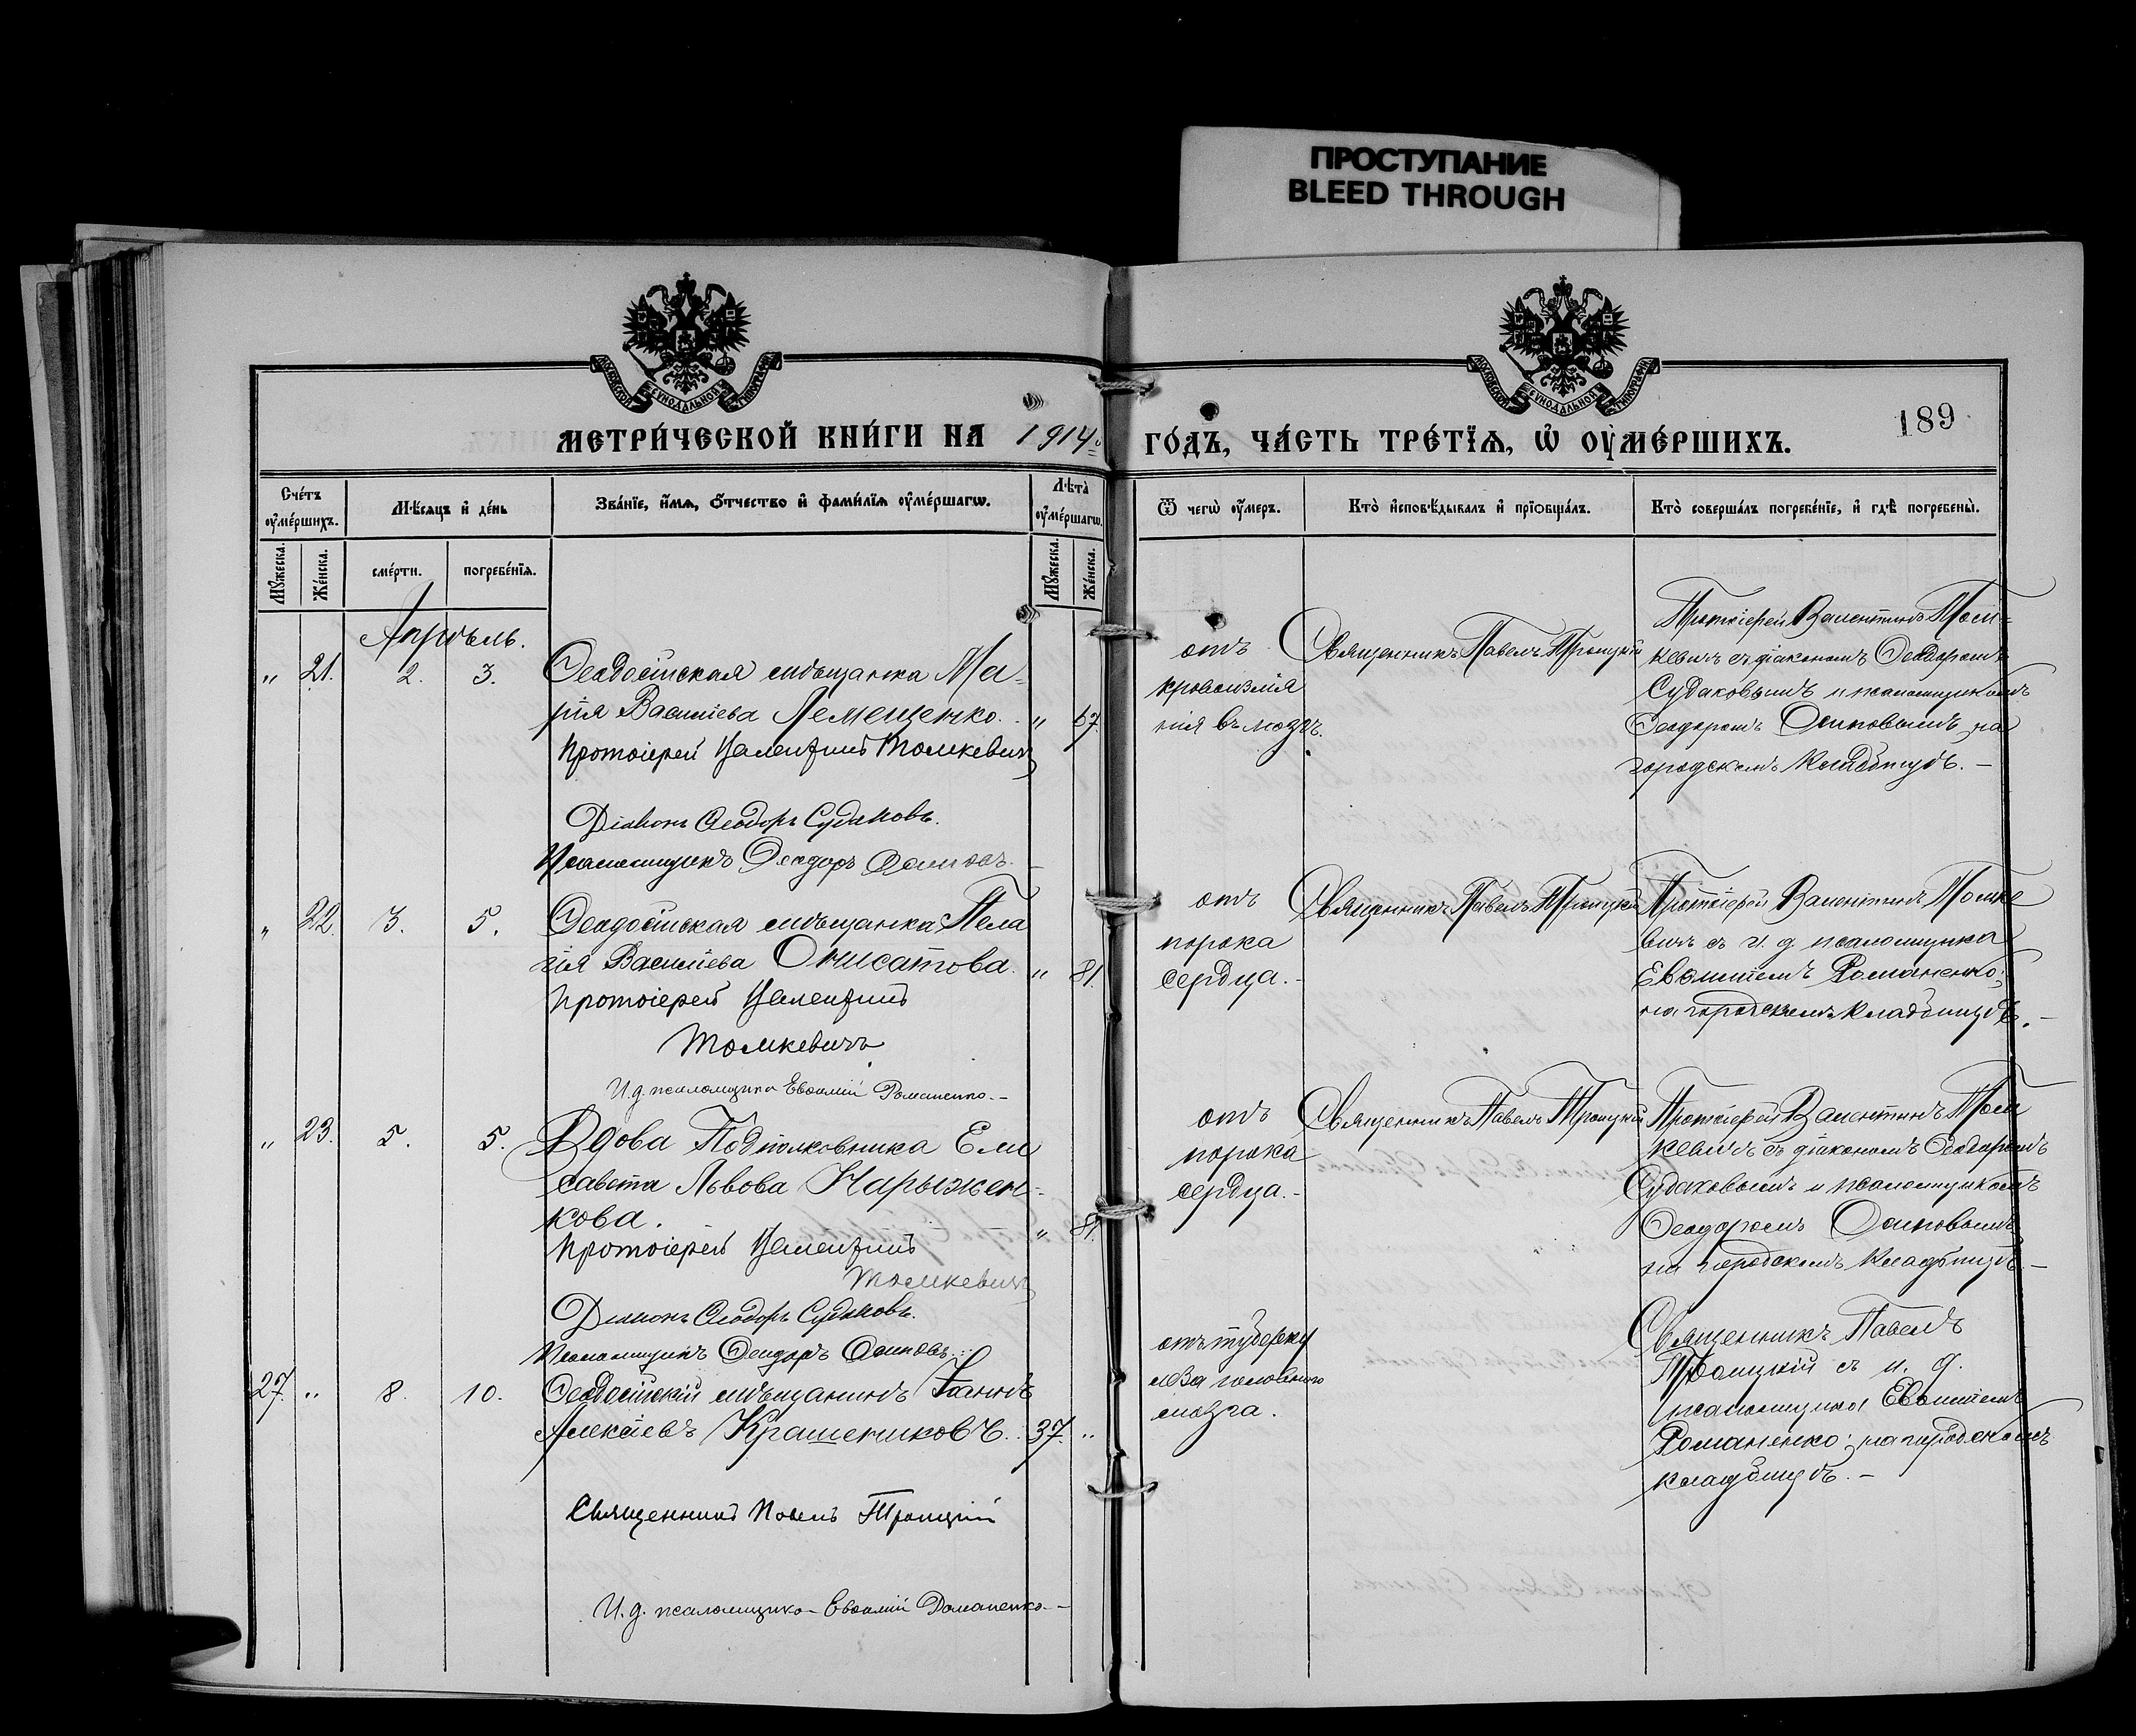 ПРОСТУПАНИЕ
BLEED THROUGH
МОСКОВСКОЙ СѴНОДАЛЬНОЙ ТИПОГРАФІИ
МОСКОВСКОЙ СѴНОДАЛЬНОЙ ТИПОГРАФІИ
189
МЕТРИ́ЧЕСКОЙ КНИ́ГИ НА 1914 ГО́ДЪ, ЧА́СТЬ ТРЕ́ТІѦ, Ѡ҆ ОУ҆МЕ́РШИХЪ.
Сче́тъ оу҆ме́ршихъ.
Мѣ́сѧцъ и҆ де́нь
Зва́нїе, и҆́мѧ, ѻ҆́тчество и҆ фами́лїѧ оу҆ме́ршагѡ.
Лѣ́та оу҆ме́ршагѡ.
Ѿ чегѡ̀ оу҆́меръ.
Кто̀ и҆сповѣ́дывалъ и҆ прїѡбща́лъ.
Кто̀ соверша́лъ погребе́нїе, и҆ гдѣ̀ погребены̀.
Мꙋ́жеска.
Же́нска.
сме́рти.
погребе́нїѧ.
Мꙋ́жеска.
Же́нска.
Апрѣль.
„ 21. 2. 3.
Ѳеодосійская мѣщанка Ма-
рія Васильева Лемещенко. „ 67.
Протоіерей Валентинъ Томкевичъ
Діаконъ Ѳеодоръ Судаковъ.
Псаломщикъ Ѳеодоръ Осиповъ.
отъ
кровоизлія
нія въ мозгъ.
Священникъ Павелъ Троицкій
Протоіерей Валентинъ Том-
кевичъ съ діакономъ Ѳеодоромъ
Судаковымъ и псаломщикомъ
Ѳеодоромъ Осиповымъ на
городскомъ кладбищѣ. –
„ 22. 3. 5.
Ѳеодосійская мѣщанка Пела
гія Васильева Онисатова. „ 81.
Протоіерей Валентинъ
Томкевичъ
И. д. псаломщика Евѳимій Романенко. –
отъ
порока
сердца. –
Священникъ Павелъ Троицкій
Протоіерей Валентинъ Томке
вичъ съ и. д. псаломщика
Евѳиміемъ Романенко;
на городскомъ кладбищѣ. –
„ 23. 5. 5.
Вдова Подполковника Ели
савета Львова Нарыжен-
кова. „ 81.
Протоіерей Валентинъ
Томкевичъ
Діаконъ Ѳеодоръ Судаковъ.
Псаломщикъ Ѳеодоръ Осиповъ.
отъ
порока
сердца. –
Священникъ Павелъ Троицкій
Протоіерей Валентинъ Том
кевичъ съ діакономъ Ѳеодоромъ
Судаковымъ и псаломщикомъ
Ѳеодоромъ Осиповымъ
на городскомъ кладбищѣ. –
27. „ 8. 10.
Ѳеодосійскій мѣщанинъ Іоаннъ
Алексіевъ Крашениковъ. 37. „
Священникъ Павелъ Троицкій
И. д. псаломщика Евѳимій Романенко. –
отъ туберку
леза головного
мозга.
Священникъ Павелъ
Троицкій съ и. д.
псаломщика Евѳиміемъ
Романенко; на городскомъ
кладбищѣ. –